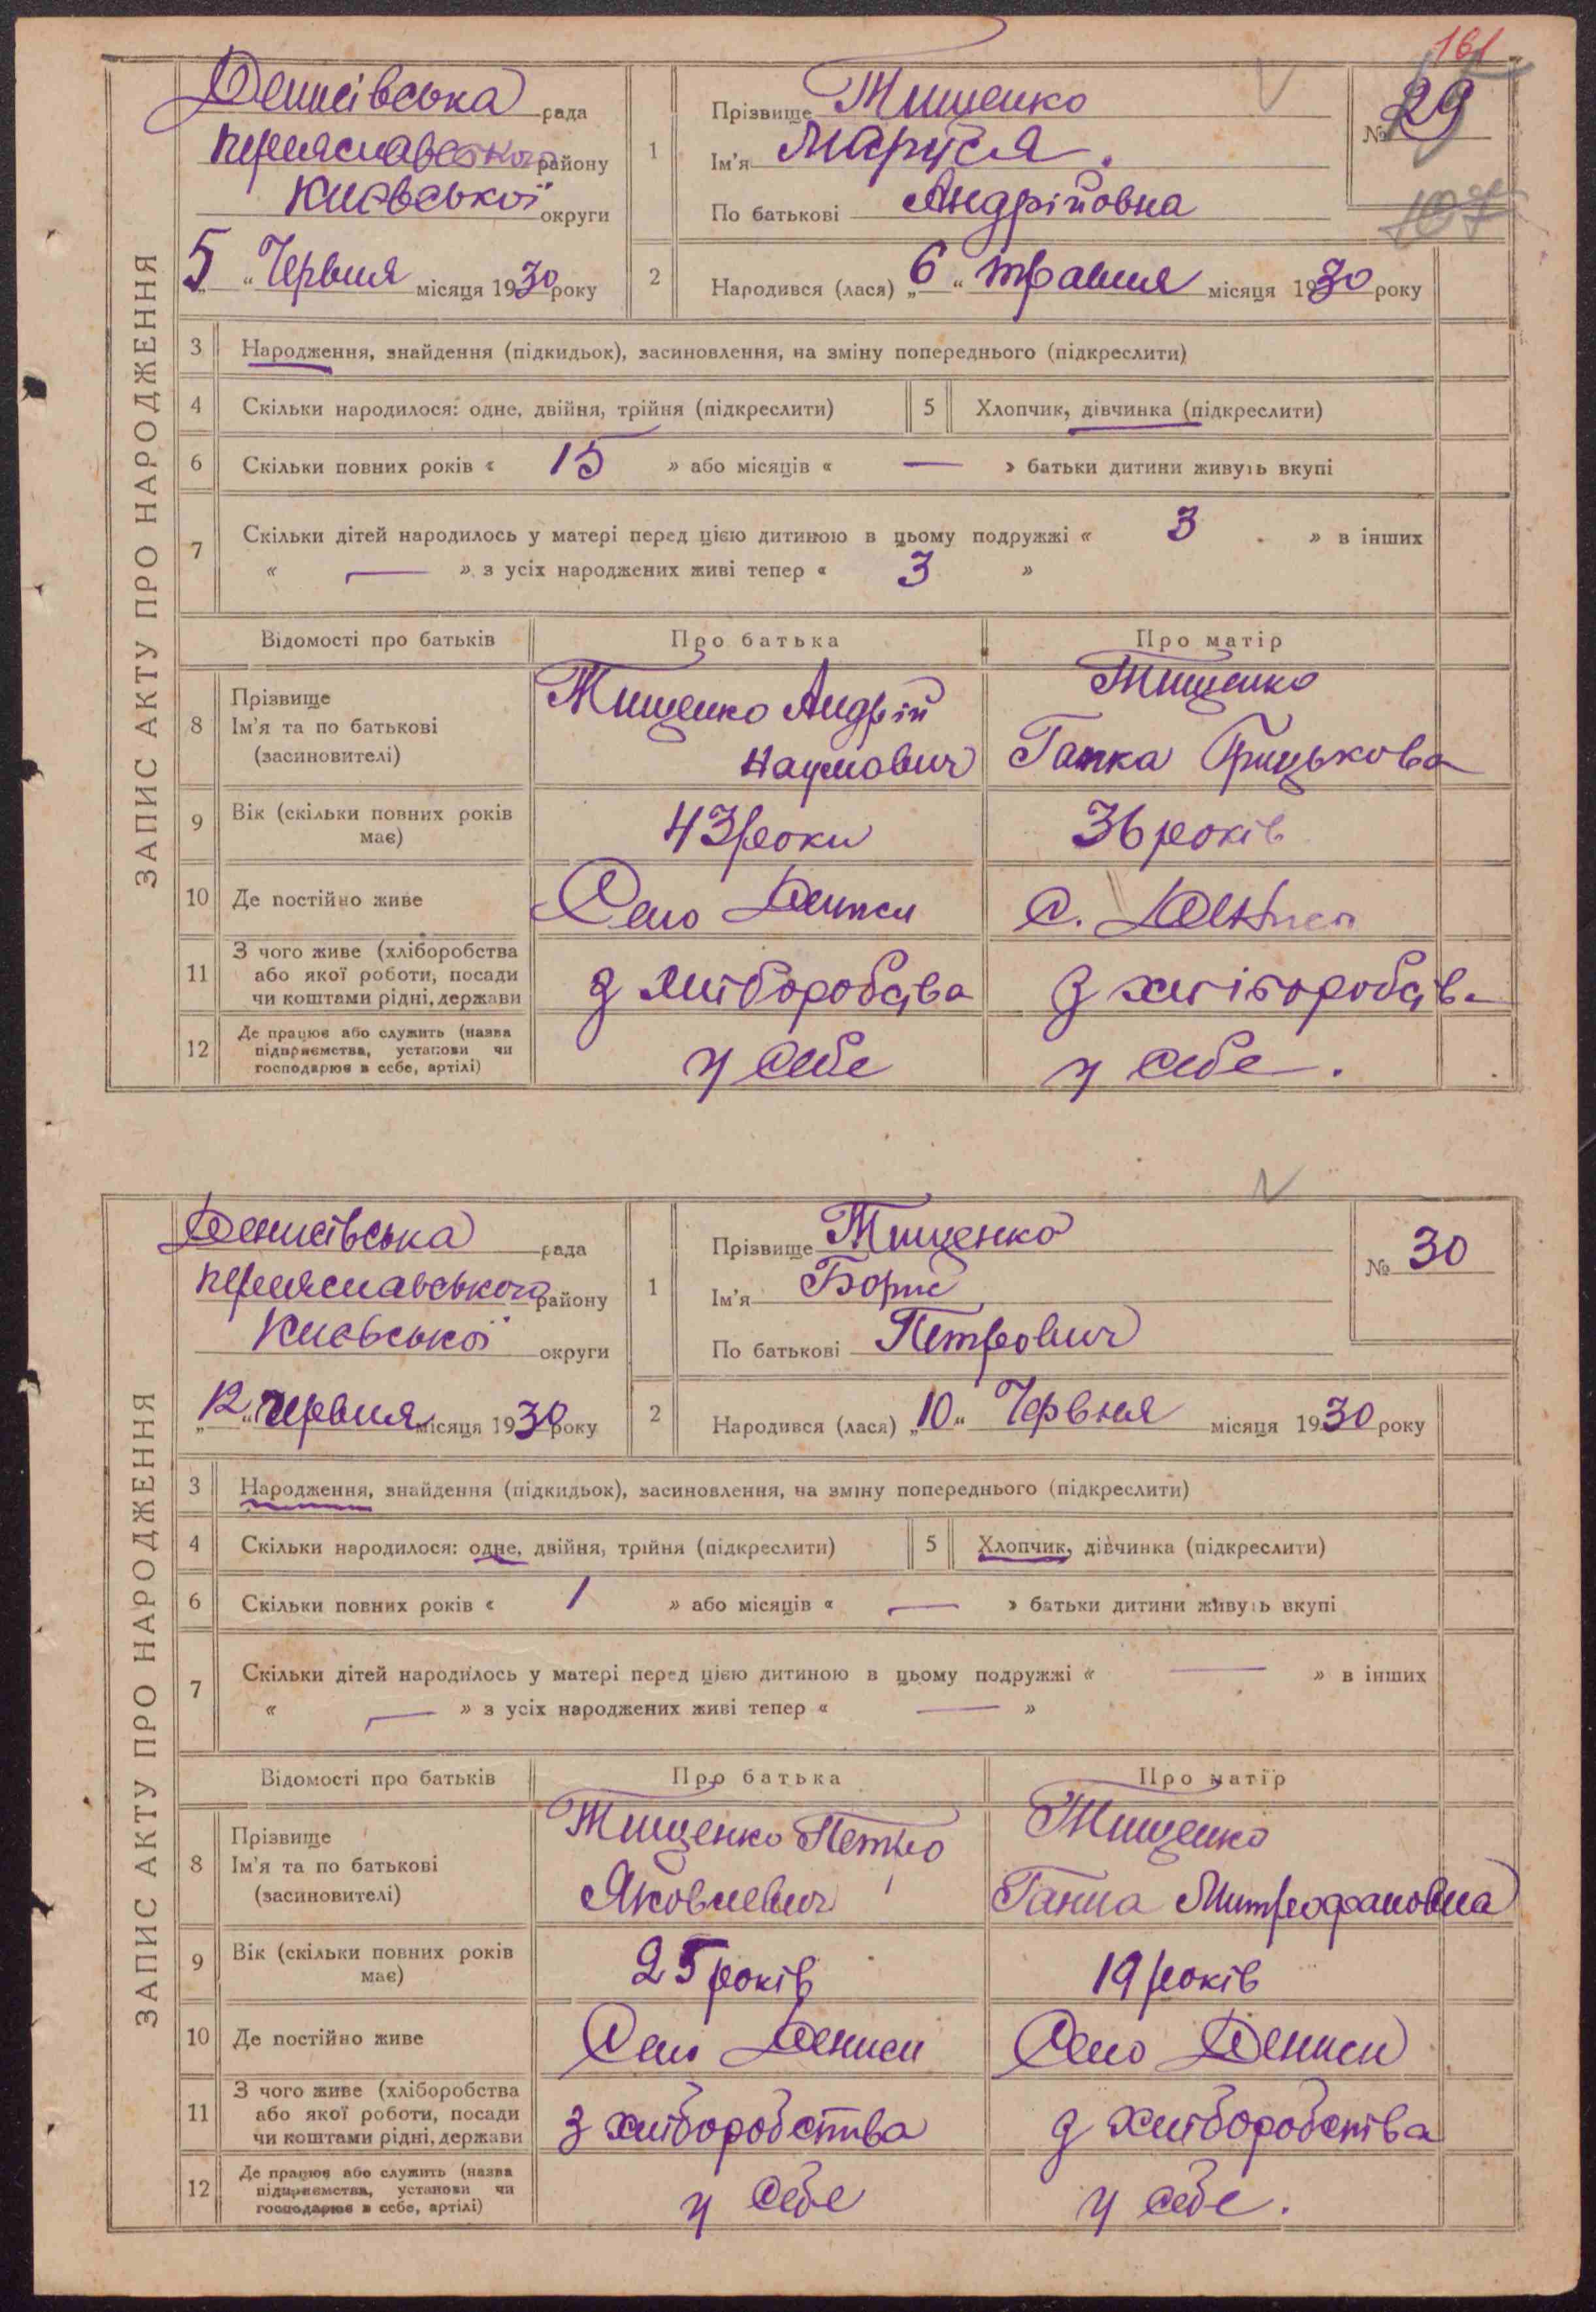 161
ЗАПИС АКТУ ПРО НАРОДЖЕННЯ
Денисівська рада
Переяславского району
Київської округи
5 " Червня місяця 1930 року
1
Прізвище Тищенко
Ім'я Маруся.
По батькові Андрійовна
№ 29
107
2
Народився (лася) „6" травня місяця 1930 року
3 Народження, знайдення (підкидьок), засиновлення, на зміну попереднього (підкреслити)
4 Скільки народилося: одне, двійня, трійня (підкреслити) 5 Хлопчик, дівчинка (підкреслити)
6 Скільки повних років « 15 » або місяців « — » батьки дитини живуть вкупі
7 Скільки дітей народилось у матері перед цією дитиною в цьому подружжі « 3 » в інших
« — » з усіх народжених живі тепер « 3 »
Відомості про батьків Про батька Про матір
8 Прізвище
Ім'я та по батькові
(засиновителі)
Тищенко Андрій
Наумович
Тищенко
Гапка Грицькова
9 Вік (скільки повних років
має)
43 роки 36 років
10 Де постійно живе Село Дениси с. Дениси
11 З чого живе (хліборобства
або якої роботи, посади
чи коштами рідні, держави
з хліборобства з хліборобств.
12 Де працює або служить (назва
підприємства, установи чи
господарює в себе, артілі)
у себе у себе.
ЗАПИС АКТУ ПРО НАРОДЖЕННЯ
Денисівська рада
Переяславського району
Київської округи
„12" червня місяця 1930 року
1
Прізвище Тищенко
Ім'я Борис
По батькові Петрович
№ 30
2
Народився (лася) „10" Червня місяця 1930 року
3 Народження, знайдення (підкидьок), засиновлення, на зміну попереднього (підкреслити)
4 Скільки народилося: одне, двійня, трійня (підкреслити) 5 Хлопчик, дівчинка (підкреслити)
6 Скільки повних років « 1 » або місяців « — » батьки дитини живуть вкупі
7 Скільки дітей народилось у матері перед цією дитиною в цьому подружжі « — » в інших
« — » з усіх народжених живі тепер « — »
Відомості про батьків Про батька Про матір
8 Прізвище
Ім'я та по батькові
(засиновителі)
Тищенко Петро
Яковлевич
Тищенко
Ганна Митрофановна
9 Вік (скільки повних років
має)
25 років 19 років
10 Де постійно живе Село Дениси Село Дениси
11 З чого живе (хліборобства
або якої роботи, посади
чи коштами рідні, держави
з хліборобства з хліборобства
12 Де працює або служить (назва
підприємства, установи чи
господарює в себе, артілі)
у себе у себе.